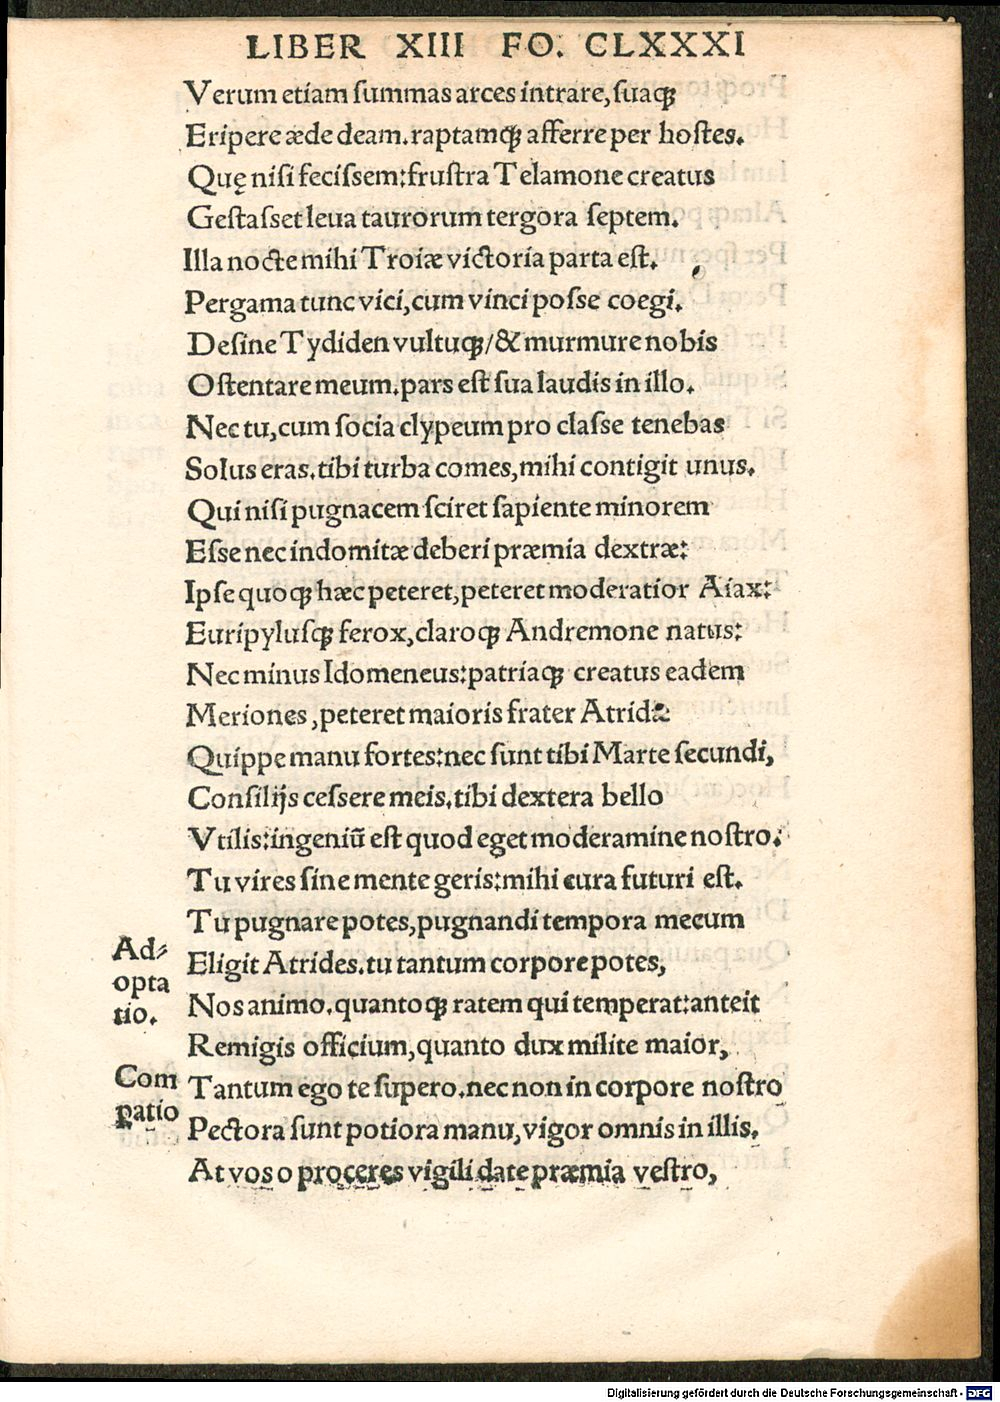 LIBER XIII FO. CLXXXI
Verum etiam ſummas arces intrare, ſuaqꝫ
Eripere æde deam. raptamqꝫ afferre per hoſtes.
Quę niſi feciſſem: fruſtra Telamone creatus
Geſtaſſet leua taurorum tergora ſeptem.
Illa nocte mihi Troiæ victoria parta eſt.
Pergama tunc vici, cum vinci poſſe coegi.
Deſine Tydiden vultuqꝫ/& murmure nobis
Oſtentare meum. pars eſt ſua laudis in illo.
Nec tu, cum ſocia clypeum pro claſſe tenebas
Solus eras. tibi turba comes, mihi contigit unus.
Qui niſi pugnacem ſciret ſapiente minorem
Eſſe nec indomitæ deberi præmia dextræ:
Ipſe quoqꝫ hæc peteret, peteret moderatior Aiax:
Euripyluſqꝫ ferox, claroqꝫ Andremone natus:
Nec minus Idomeneus: patriaqꝫ creatus eadem
Meriones, peteret maioris frater Atridæ
Quippe manu fortes: nec ſunt tibi Marte ſecundi,
Conſilijs ceſſere meis. tibi dextera bello
Vtilis: ingeniū eſt quod eget moderamine noſtro.
Tu vires ſine mente geris: mihi cura futuri eſt.
Tu pugnare potes, pugnandi tempora mecum
Ad⸗
opta
tio.
Eligit Atrides. tu tantum corpore potes,
Nos animo. quantoqꝫ ratem qui temperat: anteit
Remigis officium, quanto dux milite maior,
Com
patio
Tantum ego te ſupero. nec non in corpore noſtro
Pectora ſunt potiora manu, vigor omnis in illis.
At vos o proceres vigili date præmia veſtro,
Digitalisierung gefördert durch die Deutsche Forschungsgemeinschaft - DFG